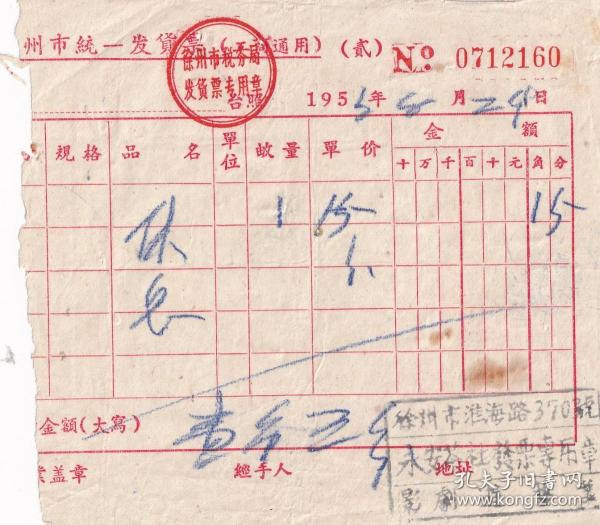 州市統一发貨票(通用)(貳) No 0712160
徐州市税务局
发貨票专用章
1955年8月29日
規格 品名 單位 数量 單价 金額
十万千百十元角分
休 1 15 15
息
金額(大寫)
盖章 經手人 地址
徐州市淮海路370號
永安茶社發票專用章
影劇
孔夫子旧书网
www.kongfz.com